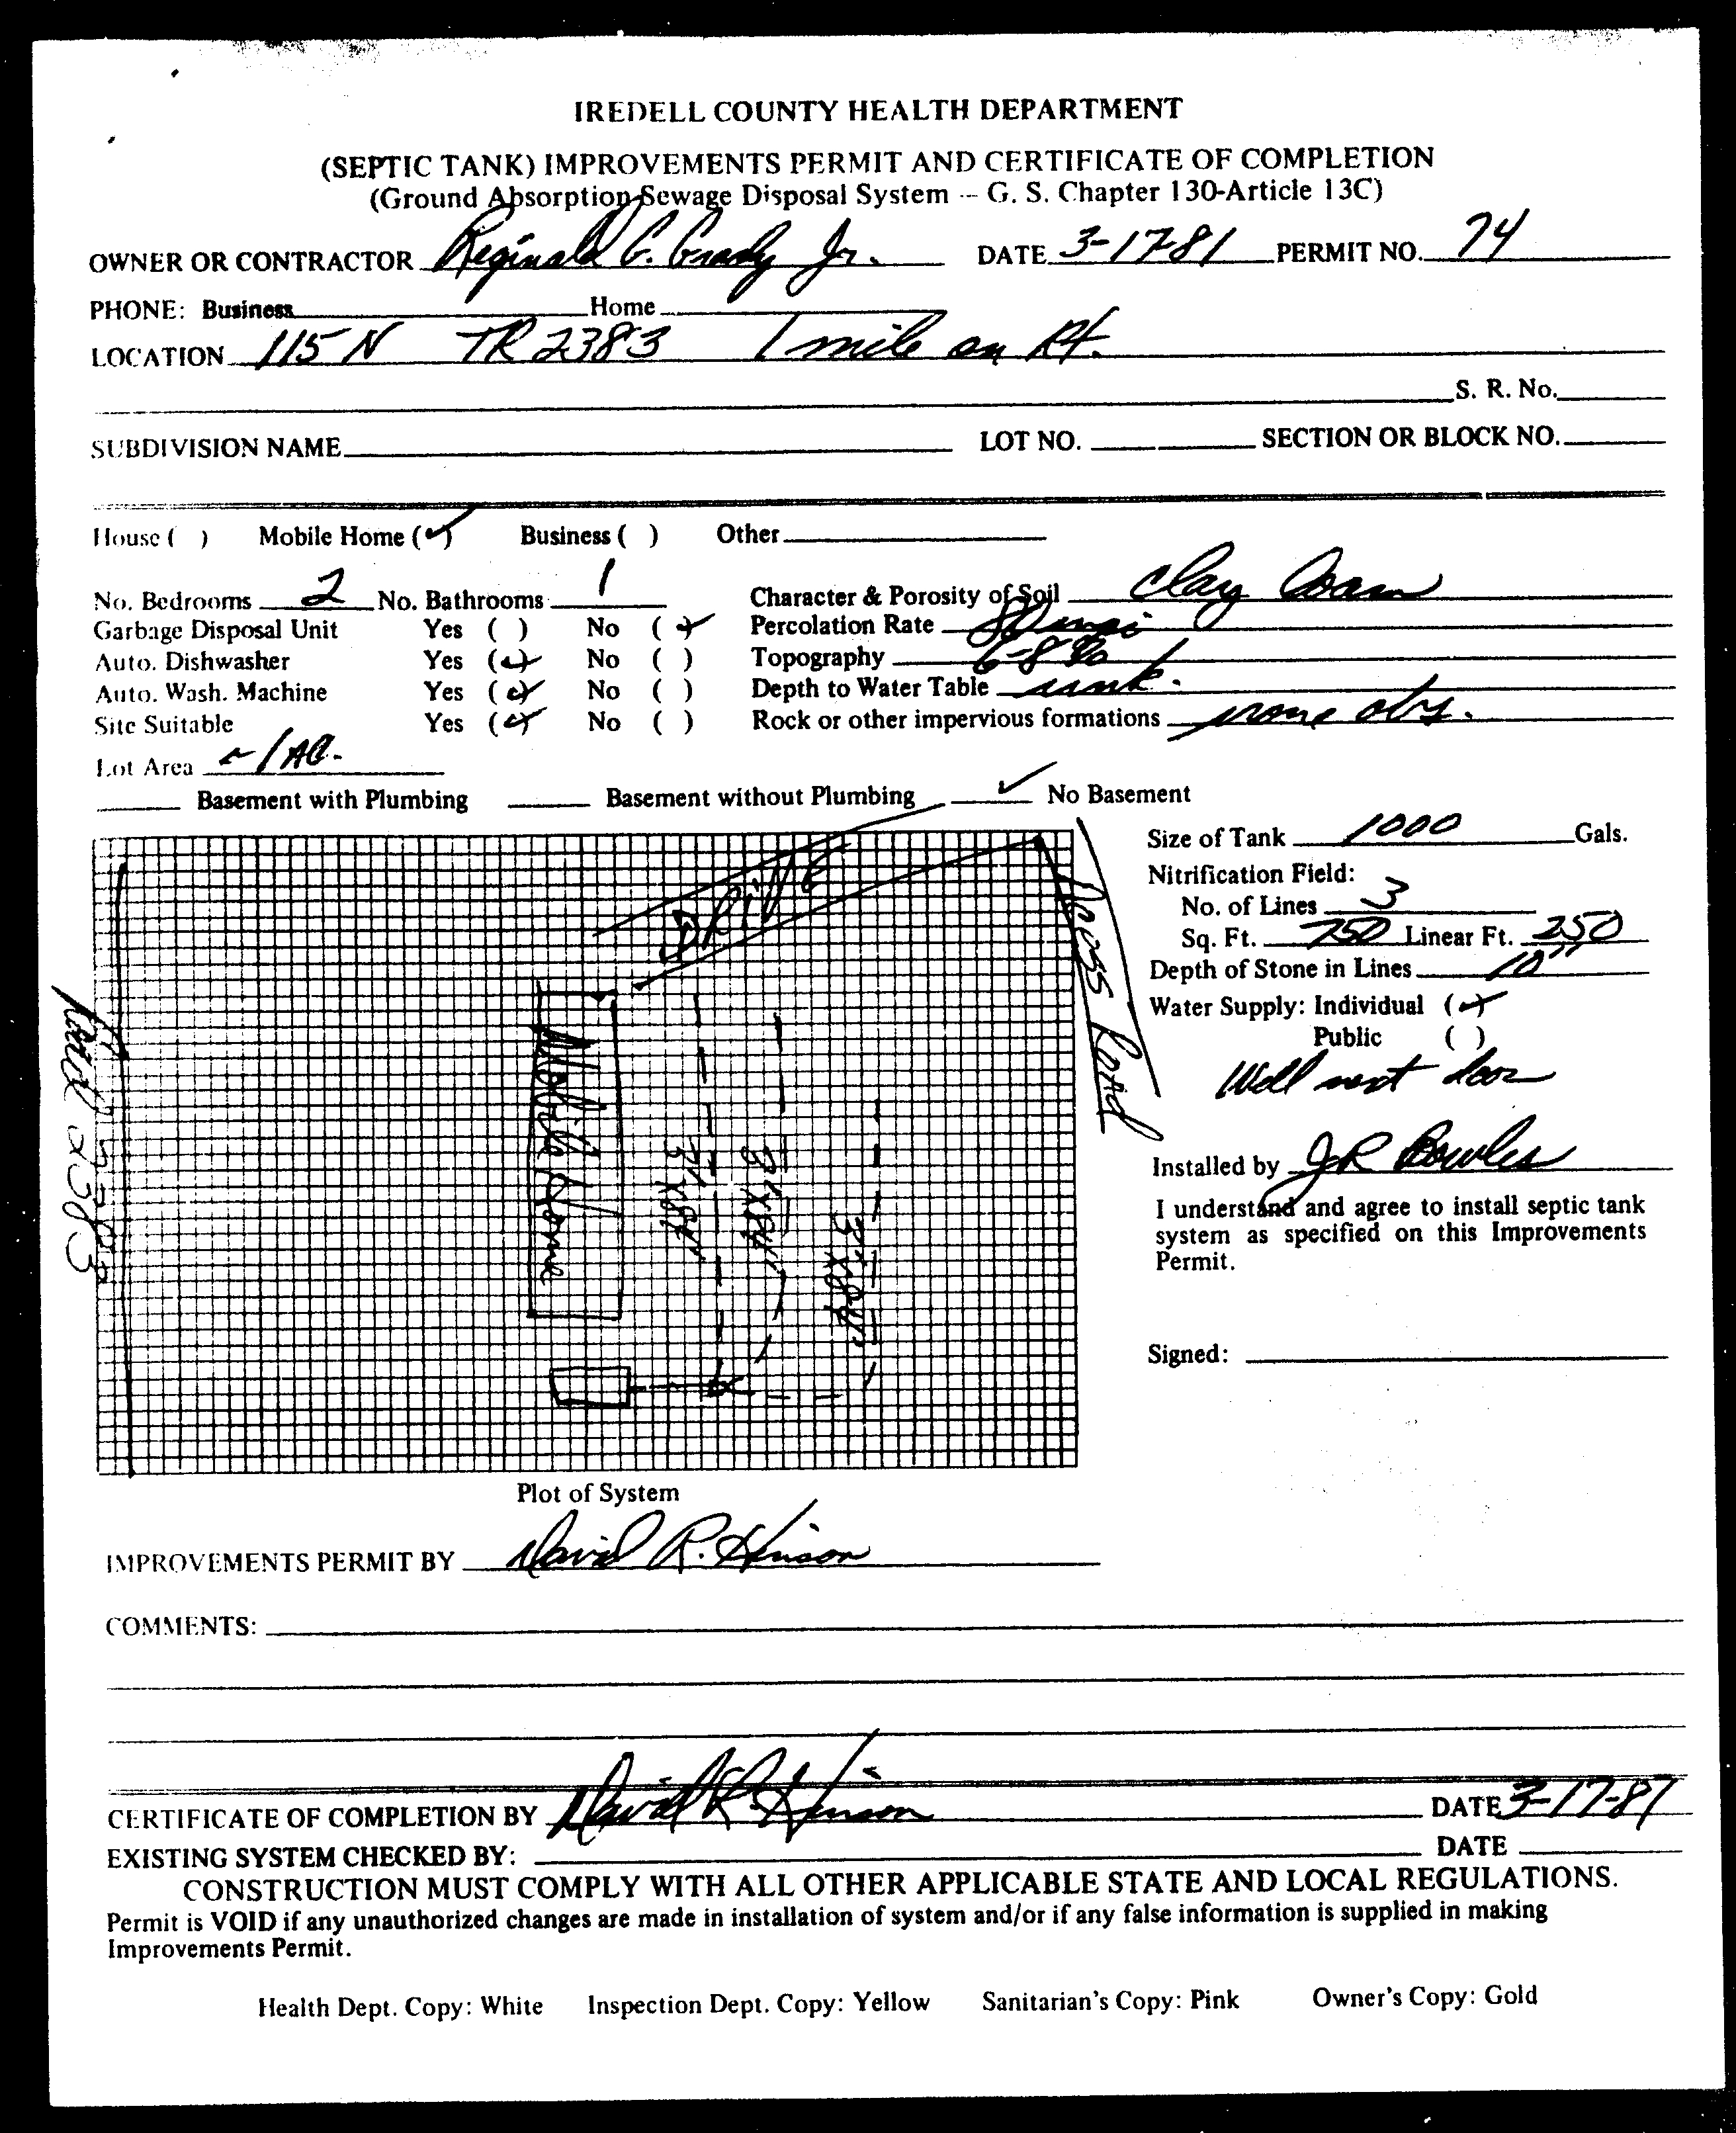 IREDELL COUNTY HEALTH DEPARTMENT
(SEPTIC TANK) IMPROVEMENTS PERMIT AND CERTIFICATE OF COMPLETION
(Ground Absorption Sewage Disposal System -- G. S. Chapter 130-Article 13C)
OWNER OR CONTRACTOR Reginald G. Grady Jr. DATE 3-17-81 PERMIT NO. 74
PHONE: Business Home
LOCATION 115 N TR 2383 1 mile on Rt.
S. R. No.
SUBDIVISION NAME LOT NO. SECTION OR BLOCK NO.
House ( ) Mobile Home (✓) Business ( ) Other
No. Bedrooms 2 No. Bathrooms 1 Character & Porosity of Soil Clay Loam
Garbage Disposal Unit Yes ( ) No (✓) Percolation Rate
Auto. Dishwasher Yes (✓) No ( ) Topography 6-8%
Auto. Wash. Machine Yes (✓) No ( ) Depth to Water Table unk.
Site Suitable Yes (✓) No ( ) Rock or other impervious formations none obs.
Lot Area ~1 AC.
Basement with Plumbing Basement without Plumbing ✓ No Basement
Size of Tank 1000 Gals.
Nitrification Field:
No. of Lines 3
Sq. Ft. 750 Linear Ft. 250
Depth of Stone in Lines 10"
Water Supply: Individual (✓)
Public ( )
Well next door
Installed by JR Bowles
I understand and agree to install septic tank
system as specified on this Improvements
Permit.
Signed:
DRive
Road
Mobile Home
3'x84'
3'x84'
3'x84'
Road 2383
Plot of System
IMPROVEMENTS PERMIT BY David R. Hinson
COMMENTS:
CERTIFICATE OF COMPLETION BY David R. Hinson DATE 3-17-81
EXISTING SYSTEM CHECKED BY: DATE
CONSTRUCTION MUST COMPLY WITH ALL OTHER APPLICABLE STATE AND LOCAL REGULATIONS.
Permit is VOID if any unauthorized changes are made in installation of system and/or if any false information is supplied in making
Improvements Permit.
Health Dept. Copy: White Inspection Dept. Copy: Yellow Sanitarian's Copy: Pink Owner's Copy: Gold